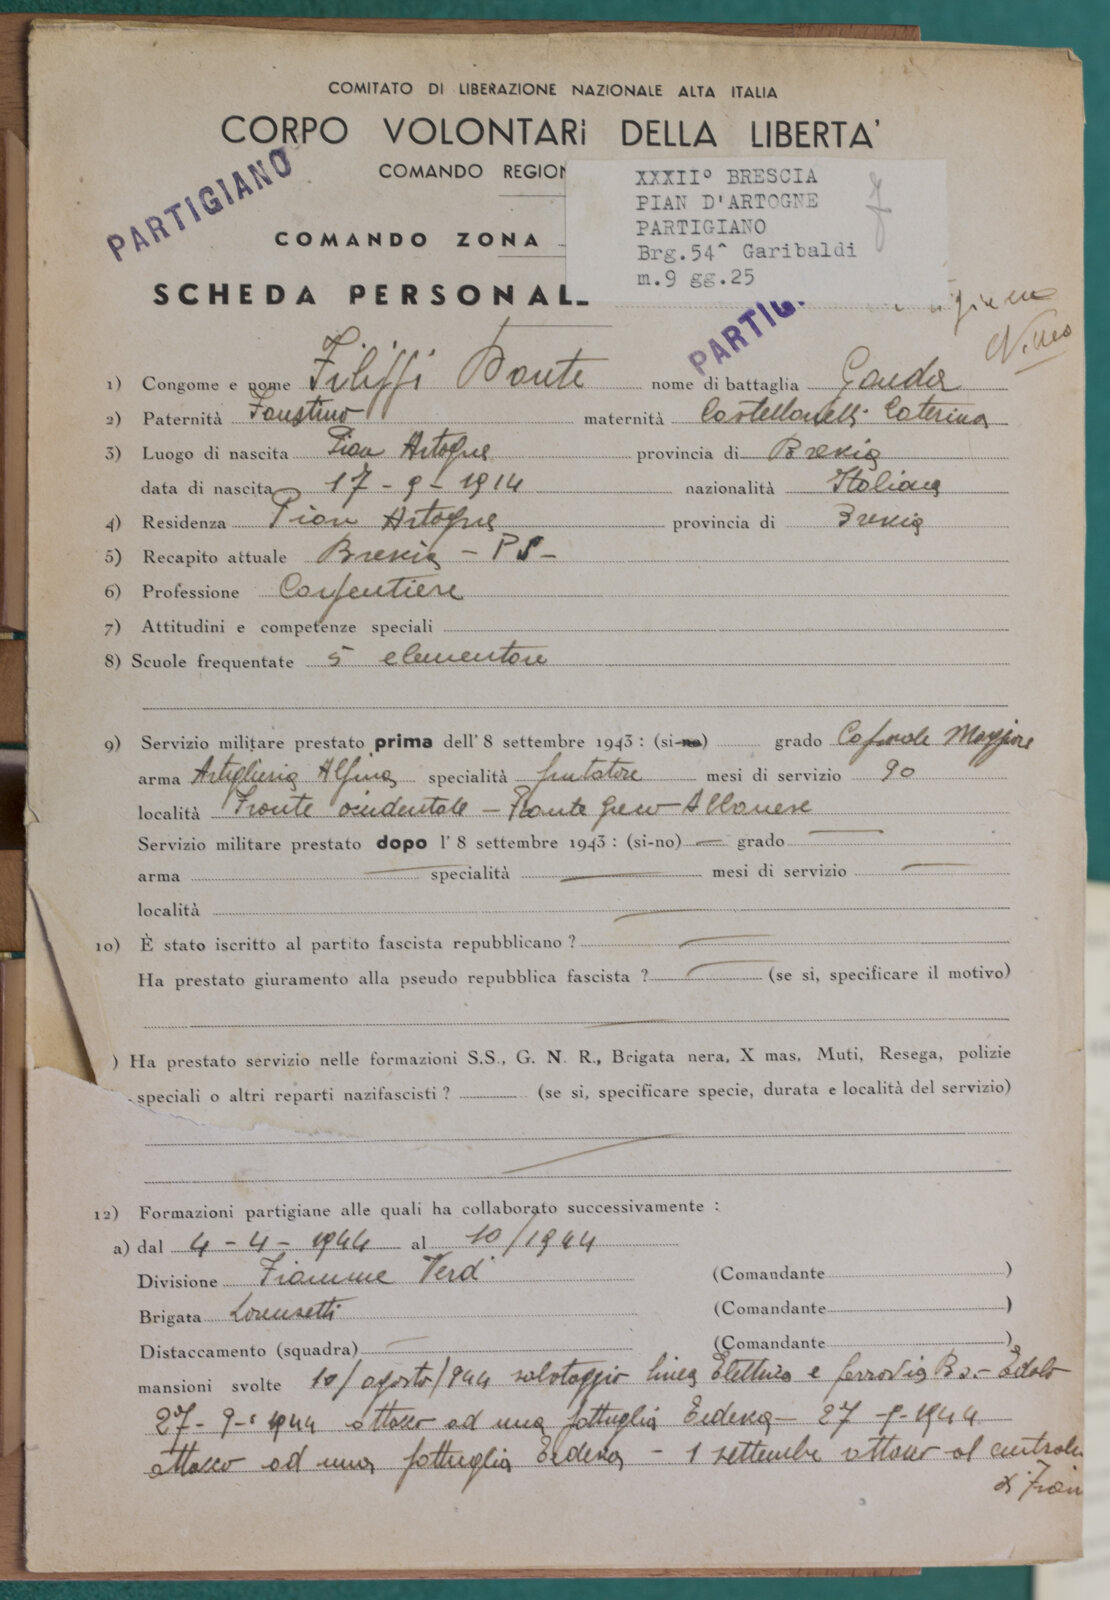 COMITATO DI LIBERAZIONE NAZIONALE ALTA ITALIA
CORPO VOLONTARi DELLA LIBERTA'
COMANDO REGION
XXXIIº BRESCIA
PIAN D'ARTOGNE
PARTIGIANO
Brg.54^ Garibaldi
m.9 gg.25
PARTIGIANO
COMANDO ZONA
SCHEDA PERSONAL
PARTIG
1) Congome e nome Filiffi Dante nome di battaglia Ganda
2) Paternità Faustino maternità Castellanelli Caterina
3) Luogo di nascita Pian Artogne provincia di Brescia
data di nascita 17 - 9 - 1914 nazionalità Italiana
4) Residenza Pian Artogne provincia di Brescia
5) Recapito attuale Brescia - PS -
6) Professione Carpentiere
7) Attitudini e competenze speciali
8) Scuole frequentate 5 elementare
9) Servizio militare prestato prima dell' 8 settembre 1943 : (si-no) grado Caporale Maggiore
arma Artiglieria Alpina specialità puntatore mesi di servizio 90
località Fronte occidentale - Fronte greco Albanese
Servizio militare prestato dopo l' 8 settembre 1943 : (si-no) — grado —
arma — specialità — mesi di servizio —
località —
10) È stato iscritto al partito fascista repubblicano ? —
Ha prestato giuramento alla pseudo repubblica fascista ? — (se sì, specificare il motivo)
) Ha prestato servizio nelle formazioni S.S., G. N. R., Brigata nera, X mas, Muti, Resega, polizie
speciali o altri reparti nazifascisti ? (se si, specificare specie, durata e località del servizio)
12) Formazioni partigiane alle quali ha collaborato successivamente :
a) dal 4 - 4 - 1944 al 10/1944
Divisione Fiamme Verdi (Comandante )
Brigata Lorenzetti (Comandante )
Distaccamento (squadra) — (Comandante )
mansioni svolte 10/agosto/944 sabotaggio linea Elettrica e ferrovia Bs.- Edolo
27 - 9 - 1944 attacco ad una pattuglia Tedesca - 27 - 9 - 1944
attacco ad una pattuglia Tedesca - 1 settembre attacco al